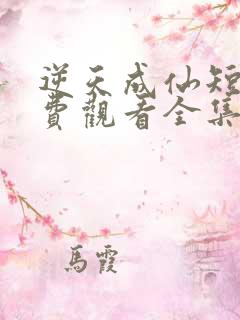 逆天成仙短
費觀看全集
馬霞